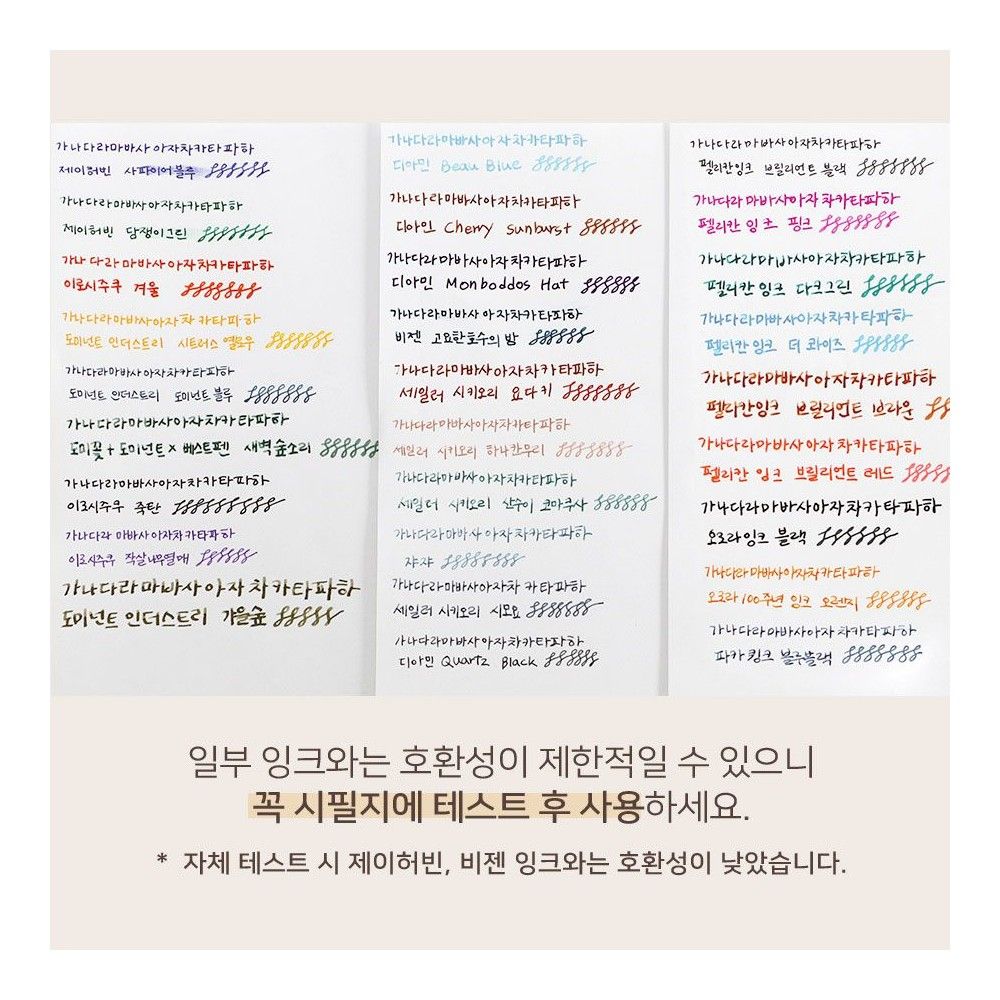 가나다라마바사아자차카타파하
제이허빈 사파이어블루
가나다라마바사아자차카타파하
제이허빈 담쟁이그린
가나다라마바사아자차카타파하
이로시주쿠 겨울
가나다라마바사아자차카타파하
도미넌트 인더스트리 시트러스 옐로우
가나다라마바사아자차카타파하
도미넌트 인더스트리 도미넌트 블루
가나다라마바사아자차카타파하
도미꽃 + 도미넌트 x 베스트펜 새벽숲소리
가나다라마바사아자차카타파하
이로시주쿠 죽탄
가나다라마바사아자차카타파하
이로시주쿠 작살나무열매
가나다라마바사아자차카타파하
도미넌트 인더스트리 가을숲
가나다라마바사아자차카타파하
디아민 Beau Blue
가나다라마바사아자차카타파하
디아민 Cherry Sunburst
가나다라마바사아자차카타파하
디아민 Monboddos Hat
가나다라마바사아자차카타파하
비젠 고요한호수의밤
가나다라마바사아자차카타파하
세일러 시키오리 요다키
가나다라마바사아자차카타파하
세일러 시키오리 하나칸무리
가나다라마바사아자차카타파하
세일러 시키오리 산수이 코마쿠사
가나다라마바사아자차카타파하
쟈쟈
가나다라마바사아자차카타파하
세일러 시키오리 시모요
가나다라마바사아자차카타파하
디아민 Quartz Black
가나다라마바사아자차카타파하
펠리칸잉크 브릴리언트 블랙
가나다라마바사아자차카타파하
펠리칸 잉크 핑크
가나다라마바사아자차카타파하
펠리칸 잉크 다크그린
가나다라마바사아자차카타파하
펠리칸 잉크 더 콰이즈
가나다라마바사아자차카타파하
펠리칸잉크 브릴리언트 브라운
가나다라마바사아자차카타파하
펠리칸 잉크 브릴리언트 레드
가나다라마바사아자차카타파하
오로라잉크 블랙
가나다라마바사아자차카타파하
오로라 100주년 잉크 오렌지
가나다라마바사아자차카타파하
파카 큉크 블루블랙
일부 잉크와는 호환성이 제한적일 수 있으니
꼭 시필지에 테스트 후 사용하세요.
* 자체 테스트 시 제이허빈, 비젠 잉크와는 호환성이 낮았습니다.